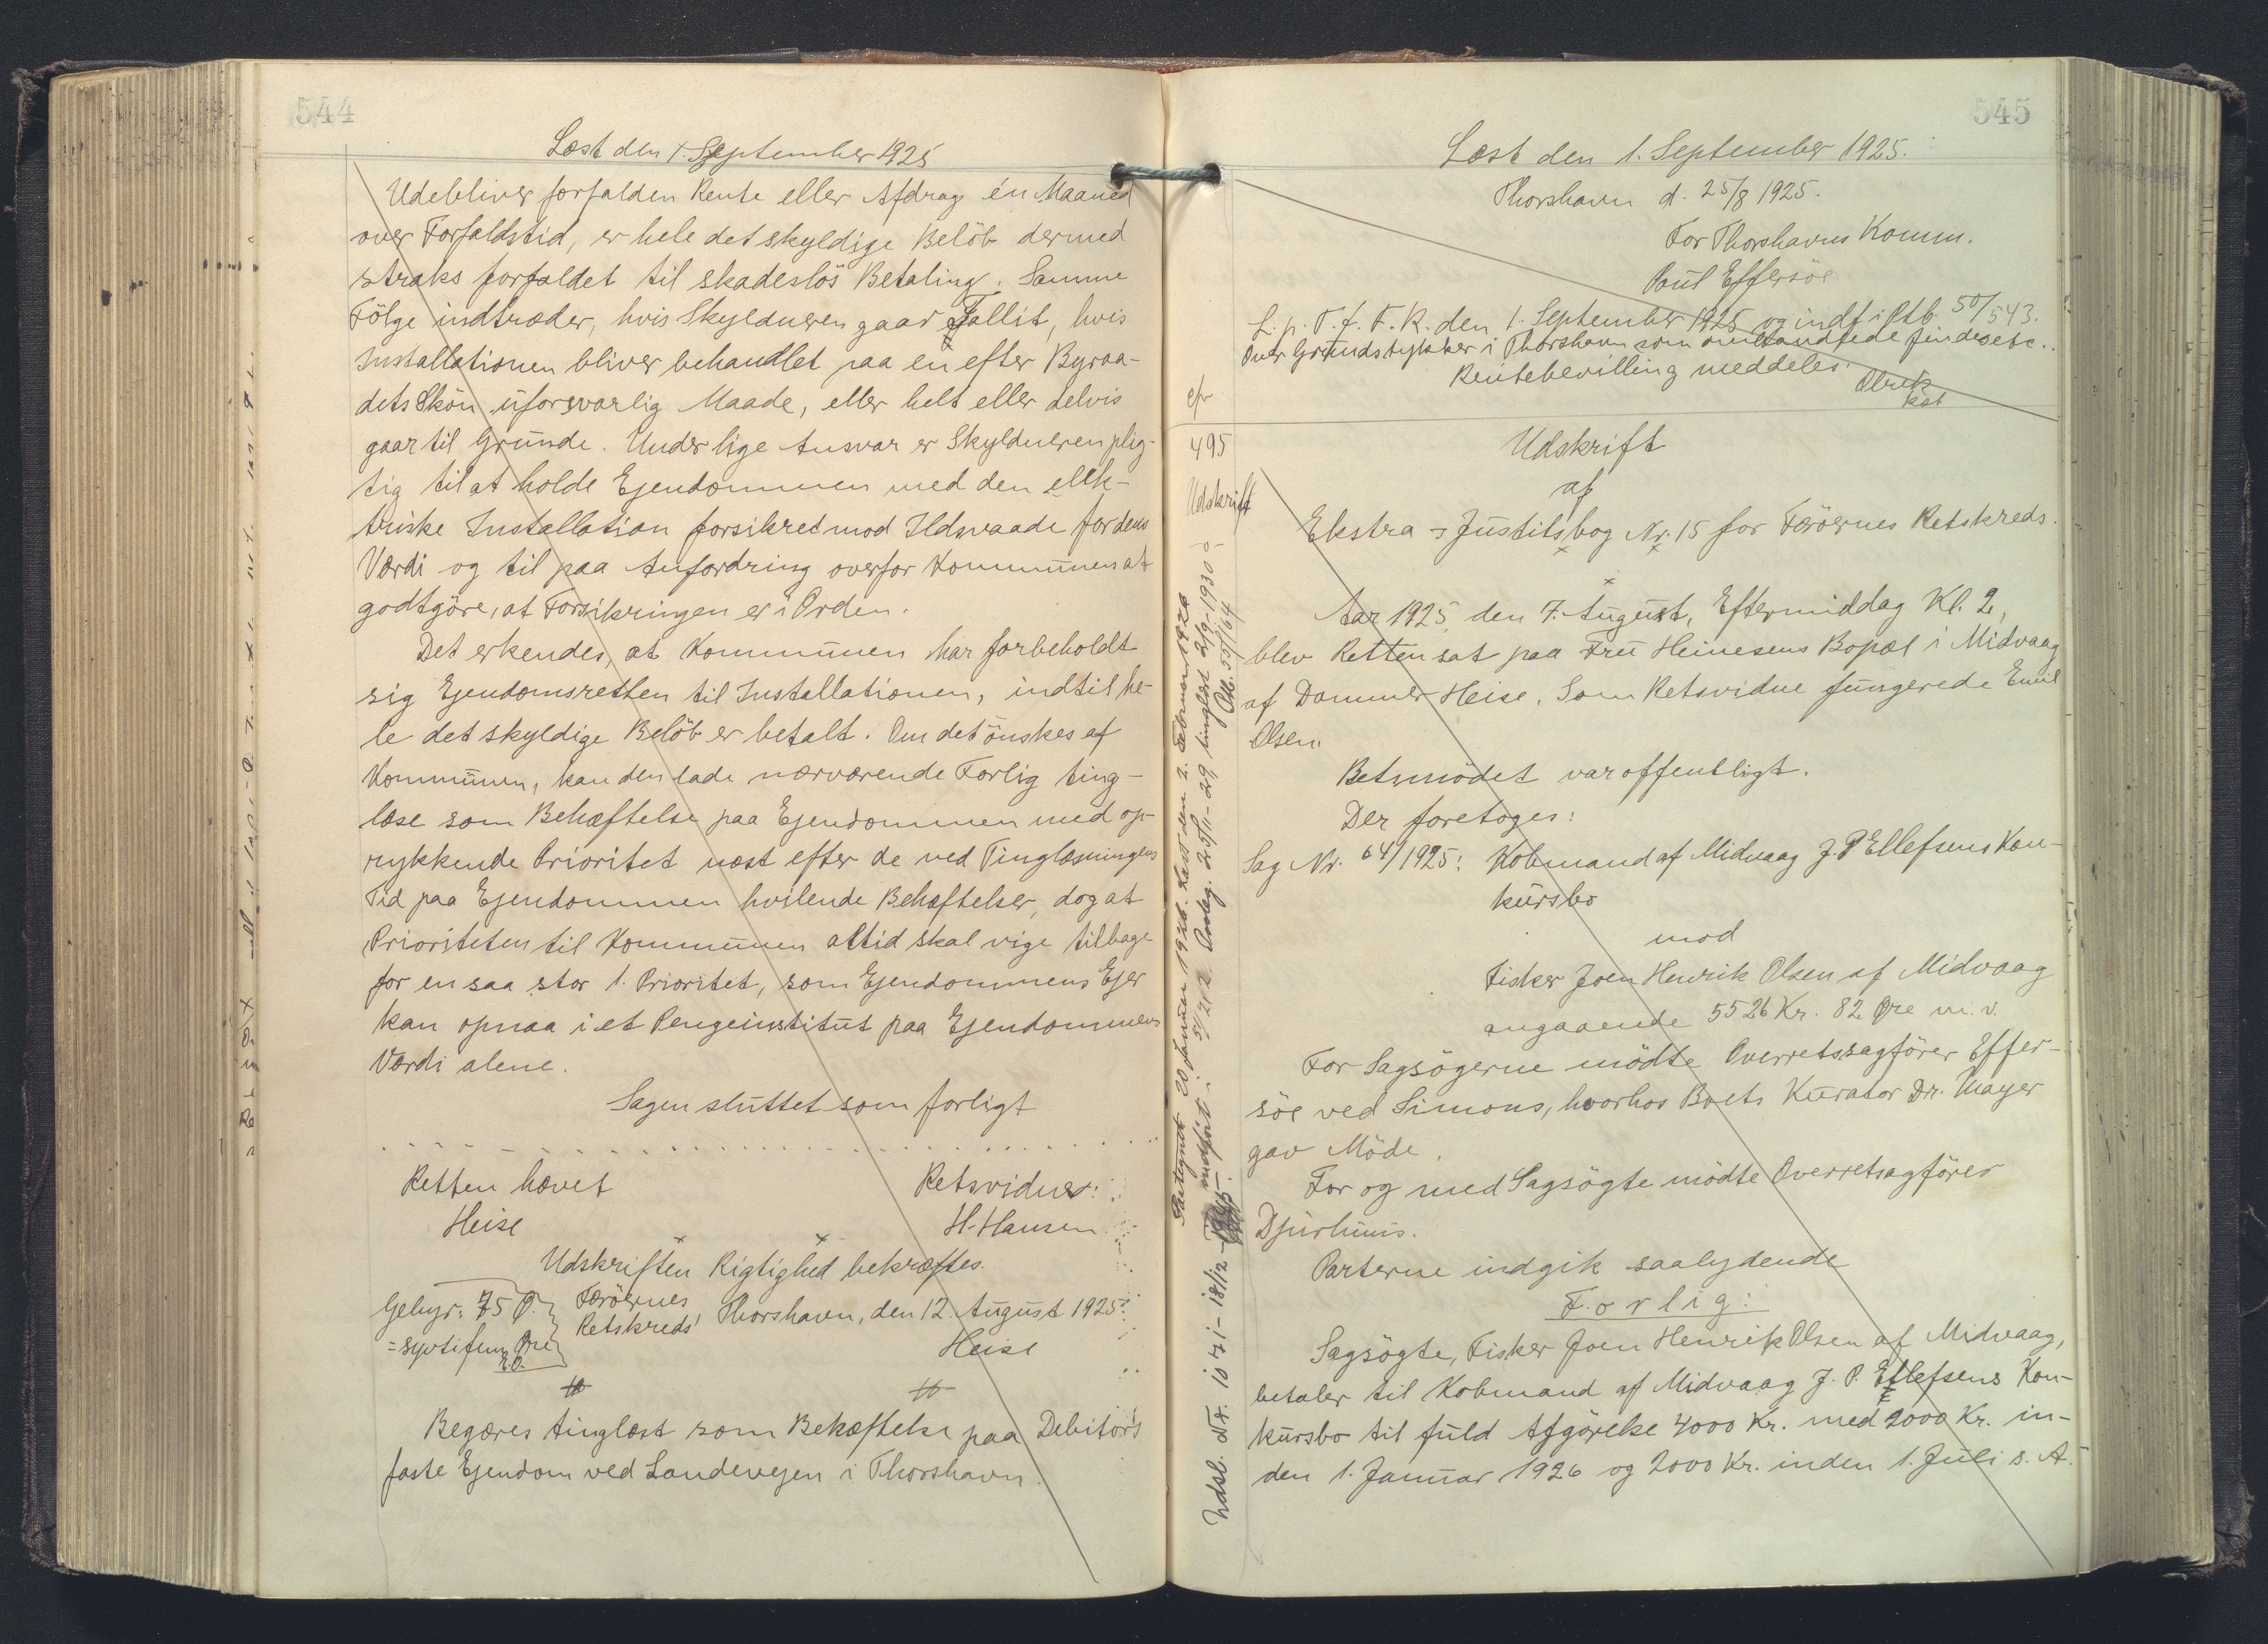 544
Læst den 1. September 1925
Udebliver forfalden Rente eller Afdrag én Maaned
over Forfaldstid, er hele det skyldige Beløb dermed
straks forfaldet til skadesløs Betaling. Samme
Følge indtræder, hvis Skylderen gaar Fallit, hvis
Installationen bliver behandlet paa en efter Byraa-
dets Skøn uforsvarlig Maade, eller helt eller delvis
gaar til Grunde. Under lige Ansvar er Skylderen plig-
tig til at holde Ejendommen med den elek-
triske Installation forsikret mod Ildsvaade for dens
Værdi og til paa Anfordring overfor Kommunen at
godtgøre, at Forsikringen er i Orden.
Det erkendes, at Kommunen har forbeholdt
sig Ejendomsretten til Installationen, indtil he-
le det skyldige Beløb er betalt. Om det ønskes af
Kommunen, kan den lade nærværende Forlig ting-
læse som Behæftelse paa Ejendommen med op-
rykkende Prioritet næst efter de ved Tinglæsningens
Tid paa Ejendommen hvilende Behæftelser, dog at
Prioriteten til Kommunen altid skal vige tilbage
for en saa stor 1. Prioritet, som Ejendommens Ejer
kan opnaa i et Pengeinstitut paa Ejendommens
Værdi alene.
Sagen sluttet som forligt
Retten hævet Retsvidner:
Heise H. Hansen
Udskriften Rigtighed bekræftes.
Gebyr: 75 Ø. Færøernes
= syvtifem Øre Retskreds, Thorshavn, den 12. August 1925.
E.O. Heise
Begæres tinglæst som Behæftelse paa Debitors
faste Ejendom ved Landevejen i Thorshavn.
545
Læst den 1. September 1925.
Thorshavn d. 25/8 1925.
For Thorshavns Komm.
Poul Effersøe
L. p. T. f. F. R. den 1. September 1925 og indf i Ptb. 50/543.
Over Grundstykker i Thorshavn som omhandlede findes etc.
Rentebevilling meddeles.
cfr
495
Udskrift
Udskrift
af
Ekstra-Justitsbog Nr. 15 for Færøernes Retskreds.
Aar 1925, den 7. August, Eftermiddag Kl. 2,
blev Retten sat paa Fru Heinesens Bopæl i Midvaag
af Dommer Heise. Som Retsvidne fungerede Emil
Olsen.
Retsmødet var offentligt.
Der foretoges:
Sag Nr. 64/1925: Købmand af Midvaag J. P Ellefsens Kon-
kursbo
mod
Fisker Joen Henrik Olsen af Midvaag
angaaende 5526 Kr. 82 Øre m. v.
For Sagsøgerne mødte Overretssagfører Effer-
søe ved Simons, hvorhos Boets Kurator Dr. Mayer
gav Møde.
For og med Sagsøgte mødte Overretsagfører
Djurhuus.
Parterne indgik saalydende
Forlig:
Sagsøgte, Fisker Joen Henrik Olsen af Midvaag,
betaler til Købmand af Midvaag J. P. Ellefsens Kon-
kursbo til fuld Afgørelse 4000 Kr. med 2000 Kr. in-
den 1. Januar 1926 og 2000 Kr. inden 1. Juli s. A.